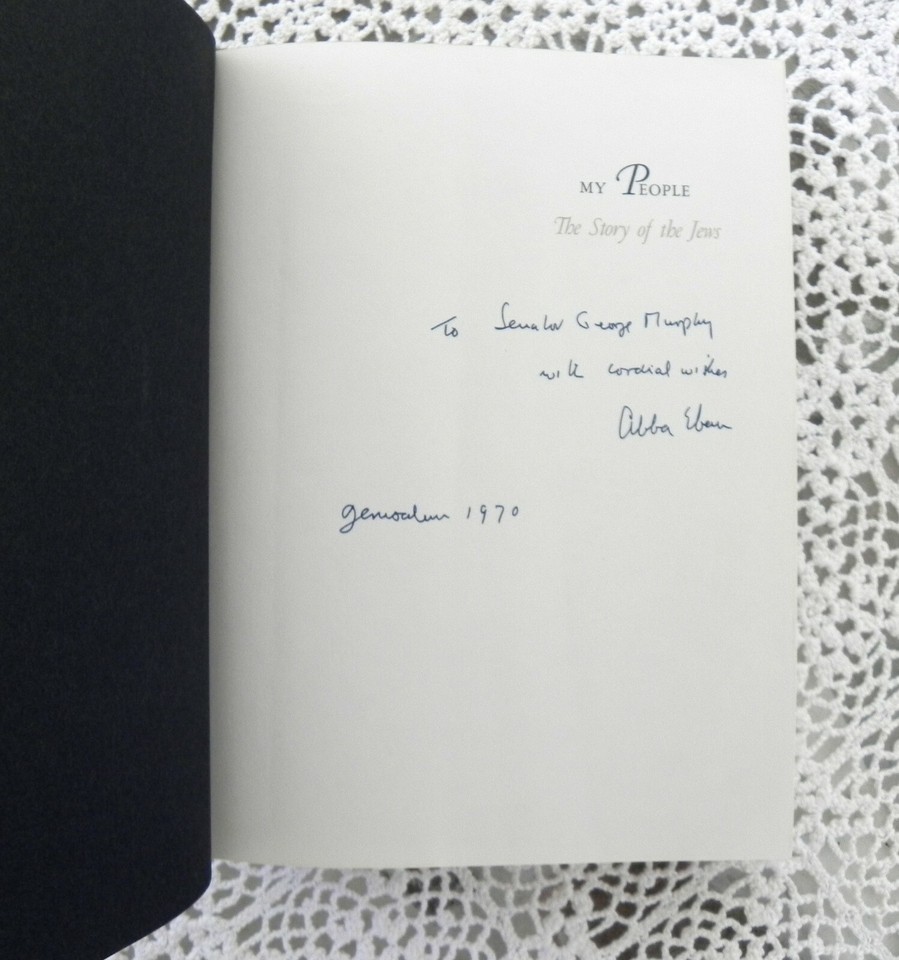 MY PEOPLE
The Story of the Jews
To Senator George Murphy
with cordial wishes
Abba Eban
Jerusalem 1970